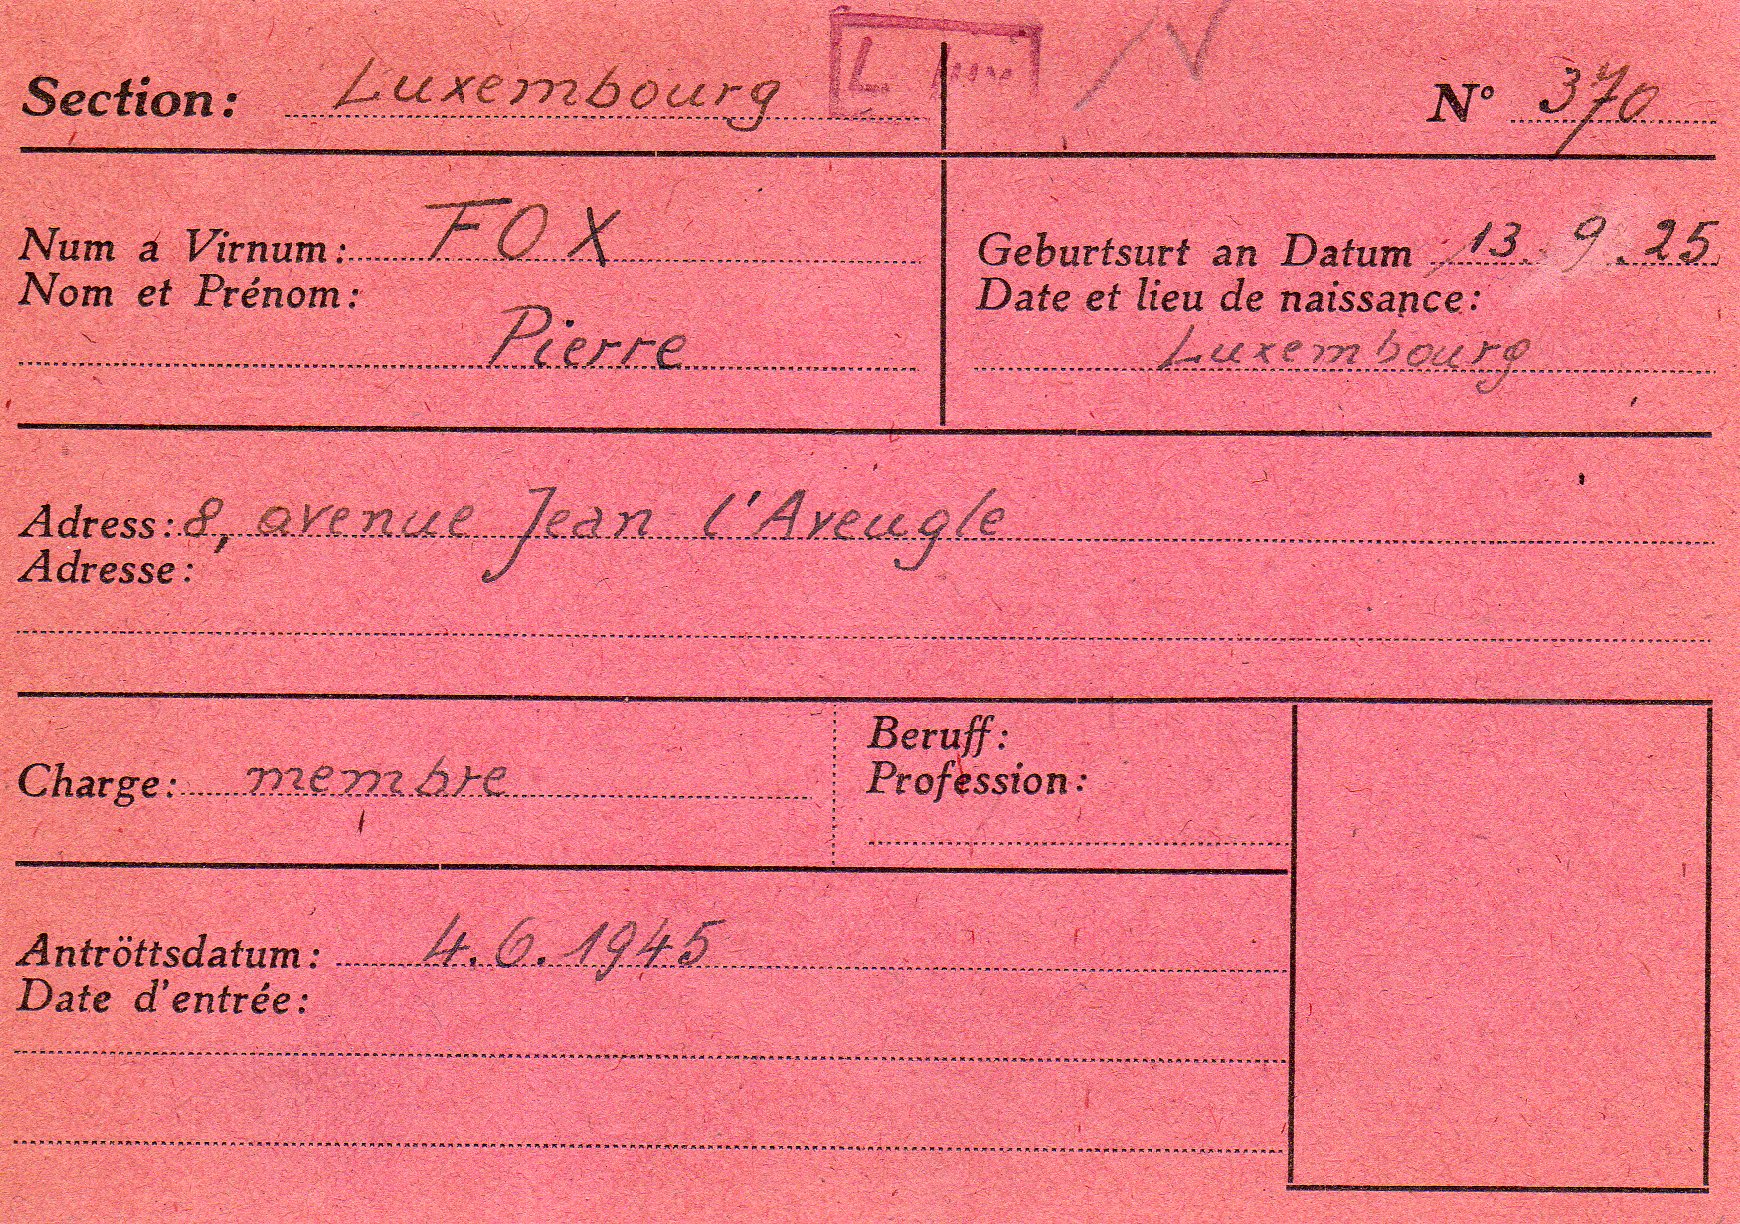 Section: Luxembourg
N° 370
Num a Virnum: FOX
Nom et Prénom:
Pierre
Geburtsurt an Datum 13.9.25
Date et lieu de naissance:
Luxembourg
Adress: 8, avenue Jean l'Aveugle
Adresse:
Charge: membre
Beruff:
Profession:
Antröttsdatum: 4.6.1945
Date d'entrée: